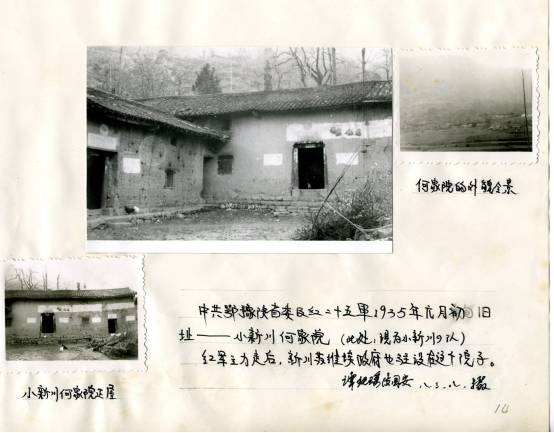 何家院的外貌全景
中共鄂豫陕省委及红二十五军1935年六月初旧
址——小新川何家院（此处，现为小新川9队）
红军主力走后，新川苏维埃政府也注设在这个院子。
八三.八.摄
小新川何家院正屋